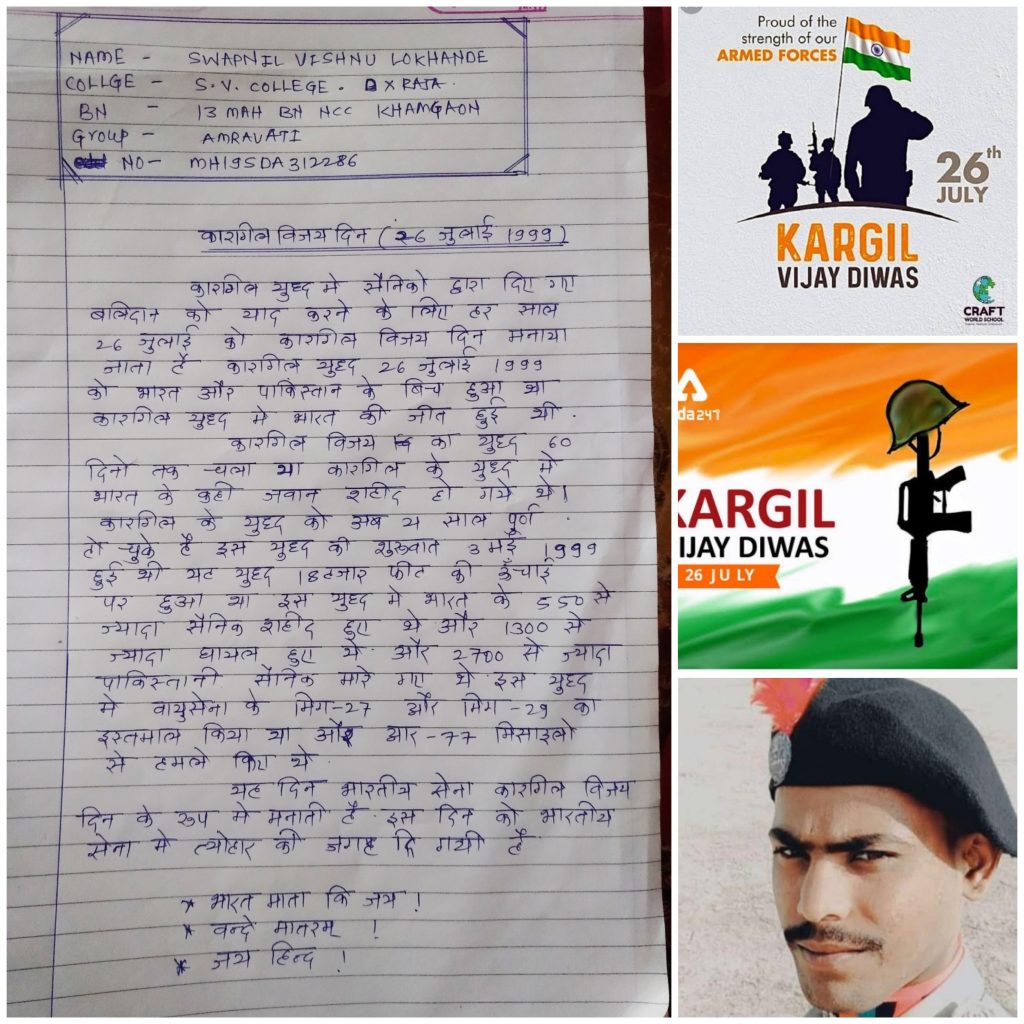 NAME - SWAPNIL VISHNU LOKHANDE
COLLGE - S.V. COLLEGE. D X RAJA.
BN - 13 MAH BN NCC KHAMGAON
Group - AMRAVATI
NO- MH19SDA312286
कारगिल विजय दिन ( 26 जुलाई 1999 )
कारगिल युध्द मे सैनिको द्वारा दिए गए
बलिदान को याद करने के लिए हर साल
26 जुलाई को कारगिल विजय दिन मनाया
जाता है कारगिल युध्द 26 जुलाई 1999
को भारत और पाकिस्तान के बिच हुआ था
कारगिल युध्द मे भारत की जीत हुई थी.
कारगिल विजय का युध्द 60
दिनो तक चला था कारगिल के युध्द मे
भारत के कही जवान शहीद हो गये थे।
कारगिल के युध्द को अब साल पुर्ण
हो चुके है इस युध्द की शुरुवात 3 मई 1999
हुई थी यह युध्द 18 हजार फीट की ऊँचाई
पर हुआ था इस युध्द मे भारत के 550 से
ज्यादा सैनिक शहीद हुए थे और 1300 से
ज्यादा घायल हुए थे. और 2700 से ज्यादा
पाकिस्तानी सैनिक मारे गए थे इस युध्द
मे वायुसेना के मिग-27 और मिग-29 का
इस्तमाल किया था और आर-77 मिसाइलो
से हमले किए थे.
यह दिन भारतीय सेना कारगिल विजय
दिन के रूप मे मनाती है. इस दिन को भारतीय
सेना मे त्योहार की जगह दि गयी है
* भारत माता कि जय !
* वन्दे मातरम् !
* जय हिन्द !
Proud of the
strength of our
ARMED FORCES
26th
JULY
KARGIL
VIJAY DIWAS
CRAFT
WORLD SCHOOL
da247
KARGIL
VIJAY DIWAS
26 JULY